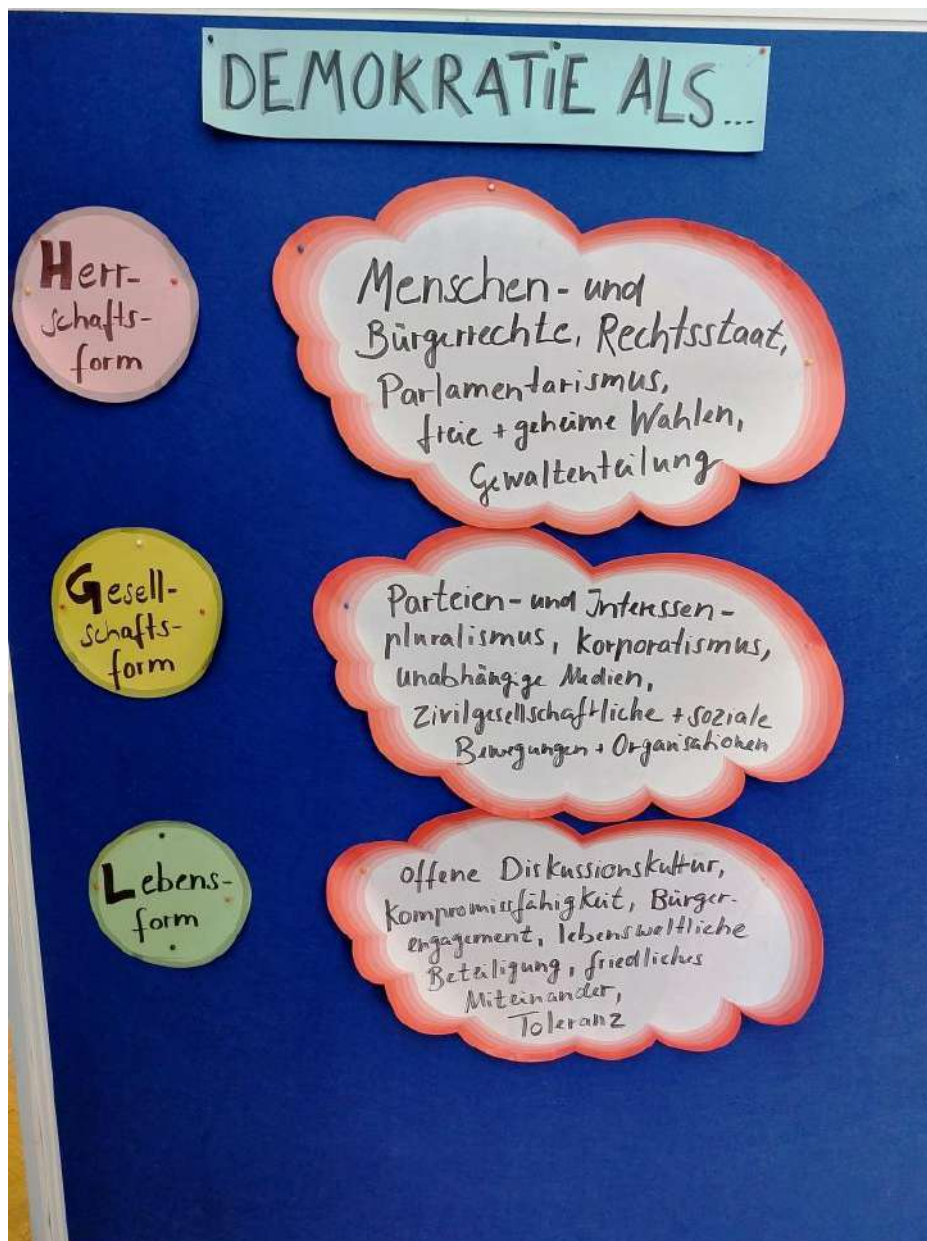 DEMOKRATiE ALS...
Herr-
schafts-
form
Menschen- und
Bürgerrechte, Rechtsstaat,
Parlamentarismus,
freie + geheime Wahlen,
Gewaltenteilung
Gesell-
schafts-
form
Parteien- und Interessen-
pluralismus, Korporatismus,
unabhängige Medien,
Zivilgesellschaftliche + soziale
Bewegungen + Organisationen
Lebens-
form
offene Diskussionskultur,
Kompromissfähigkeit, Bürger-
engagement, lebensweltliche
Beteiligung, friedliches
Miteinander,
Toleranz